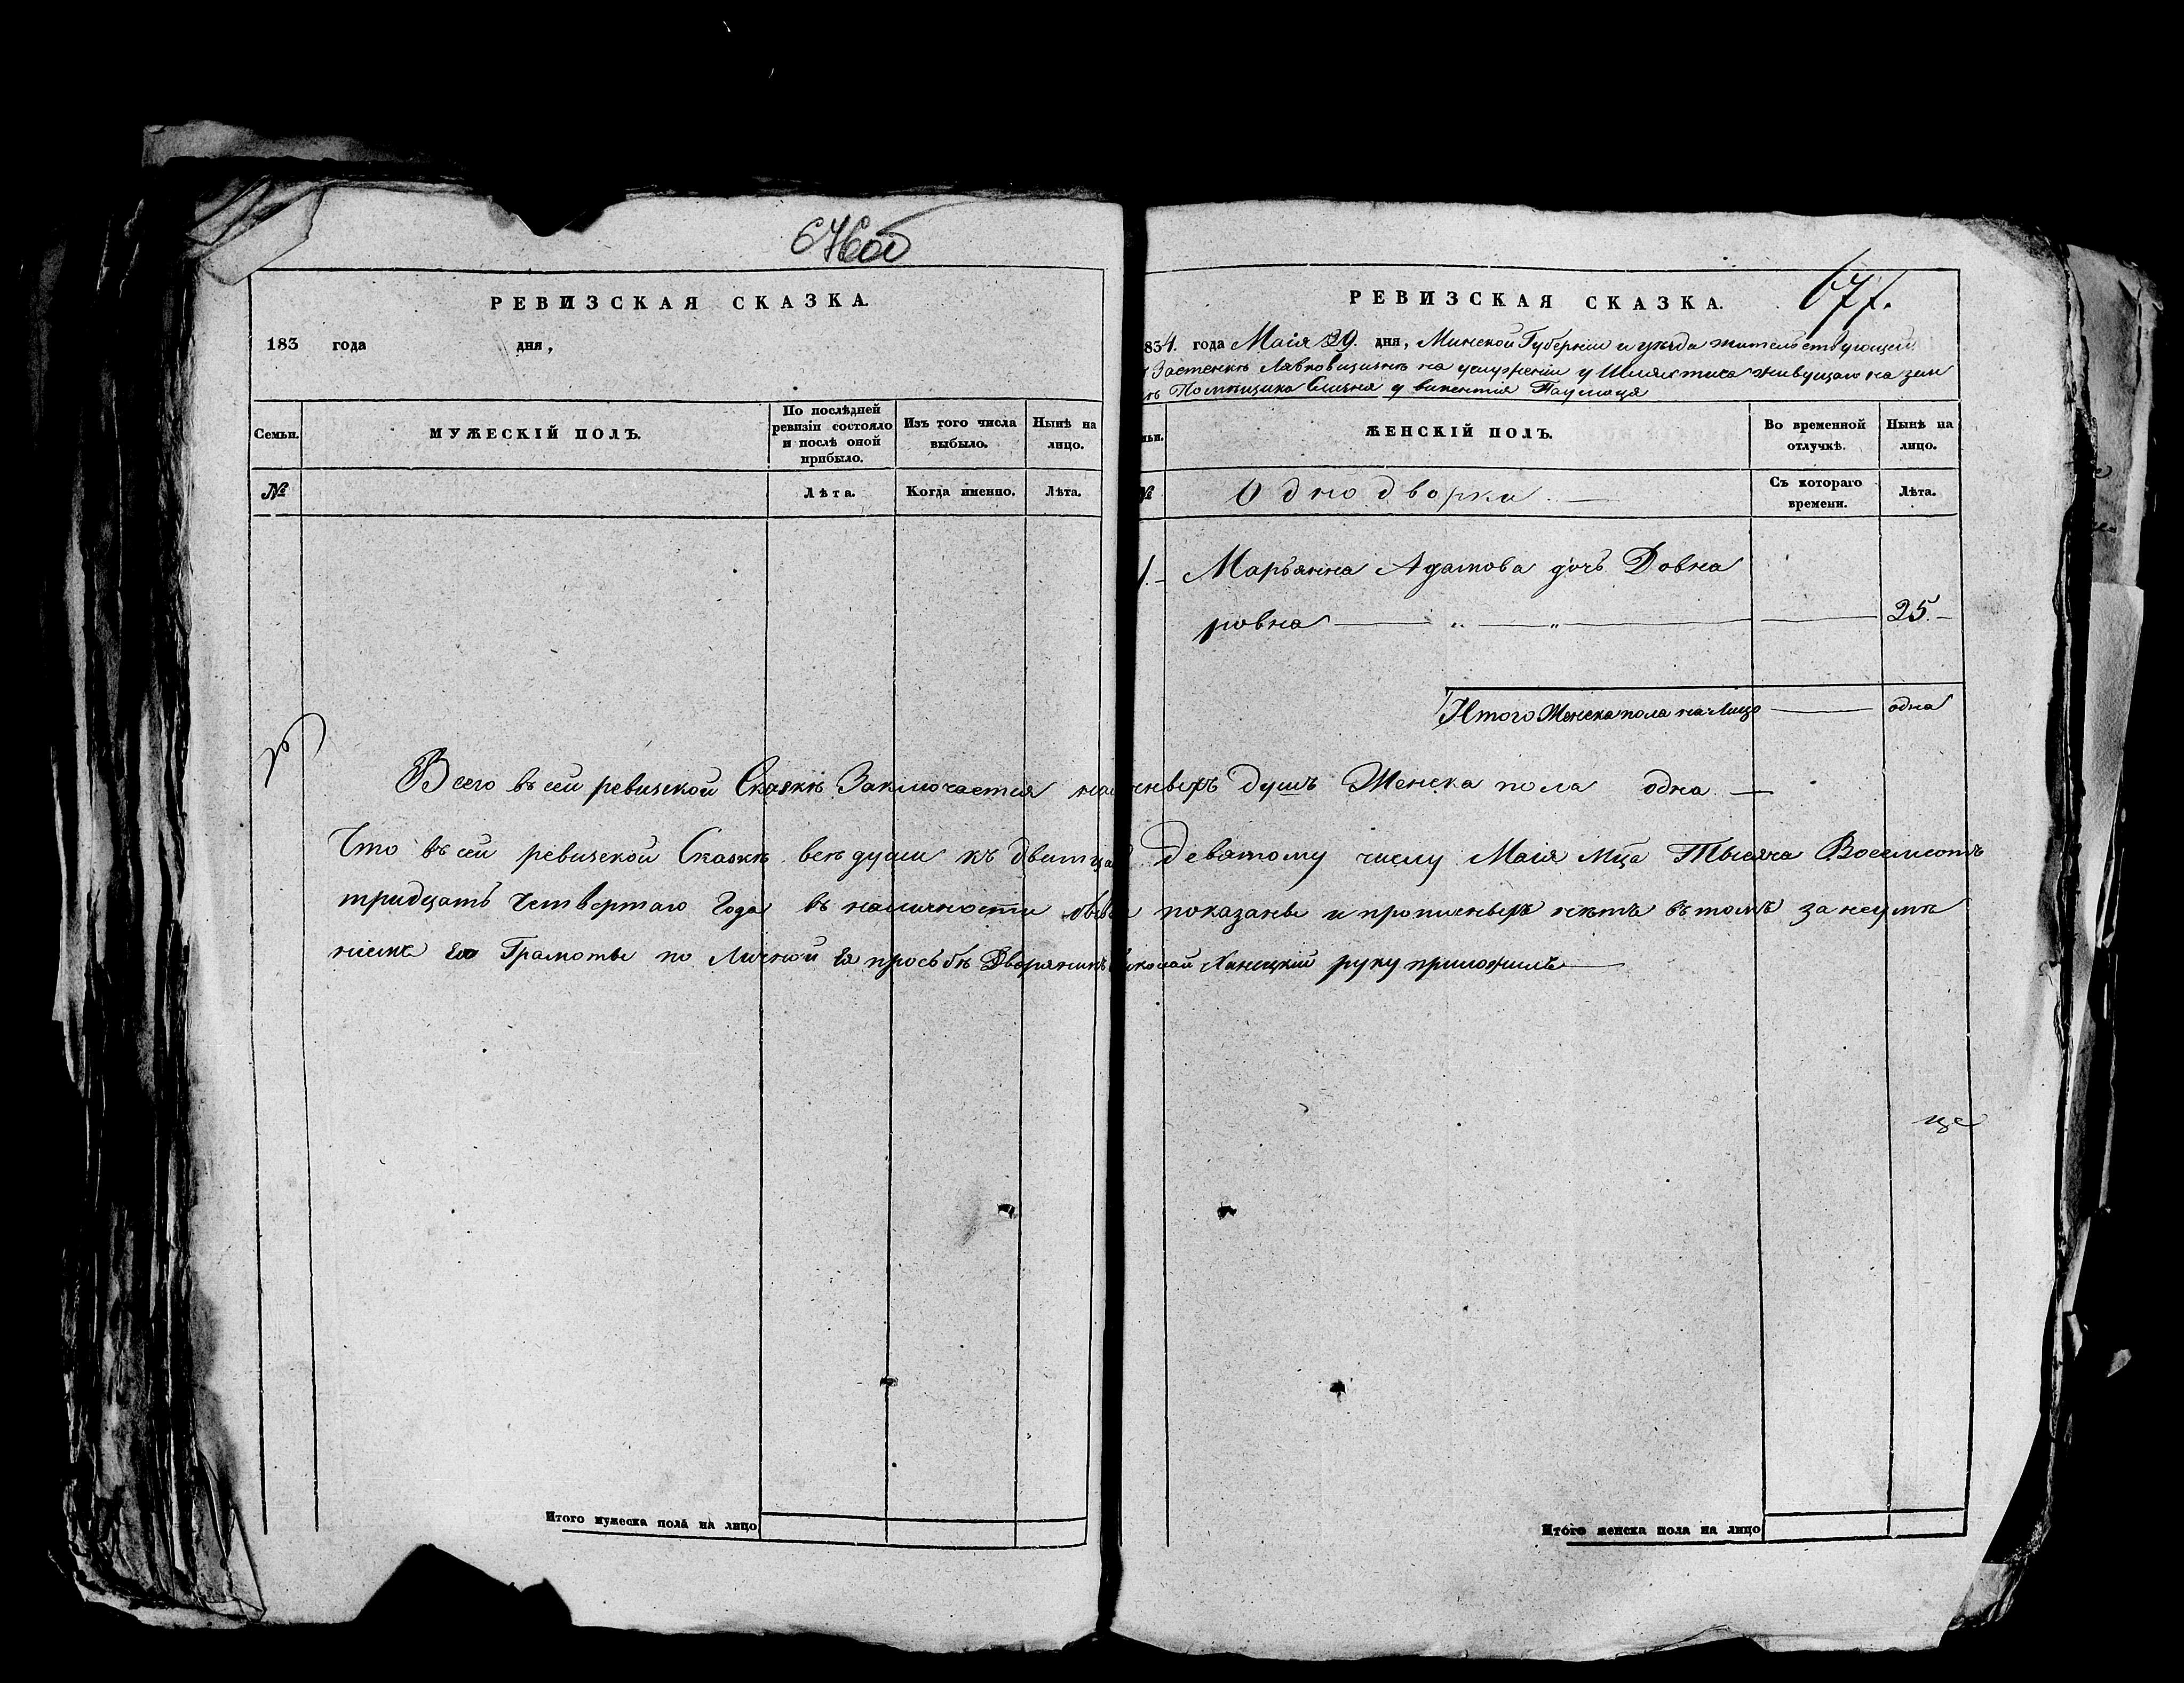 676об
РЕВИЗСКАЯ СКАЗКА.
183 года дня,
Семьи.
МУЖЕСКІЙ ПОЛЪ.
По послѣдней ревизіи состояло и послѣ оной прибыло.
Изъ того числа выбыло.
Нынѣ на лицо.
№
Лѣта.
Когда именно.
Лѣта.
677.
РЕВИЗСКАЯ СКАЗКА.
834. года Маія 29. дня, Минской Губерніи и уѣзда жительствующей
Застенкѣ Лявковщизнѣ на услуженіи у Шляхтича живущаго на зем
Помѣщика Слизня у викентія
ЖЕНСКІЙ ПОЛЪ.
Во временной отлучкѣ.
Нынѣ на лицо.
№
Однодворки
Съ котораго времени.
Лѣта.
1. Марьянна Адамова дочь Довна
ровна 25.
Итого Женска пола на Лицо одна
Всего въ сей ревизской Сказкѣ Заключается наличныхъ душъ Женска пола одна
Что въ сей ревизской Сказкѣ всѣ души къ двятцать девятому числу Маія Мца Тысяча Восемсотъ
тридцать Четвертаго Года въ наличности бывшія показаны и прописныхъ нѣтъ въ томъ за неумѣ
ніемъ Ея Грамоты по Личной Ея прозьбѣ Дворянинъ Николай Ханецкій руку приложилъ
ще
Итого мужеска пола на лицо
Итого женска пола на лицо